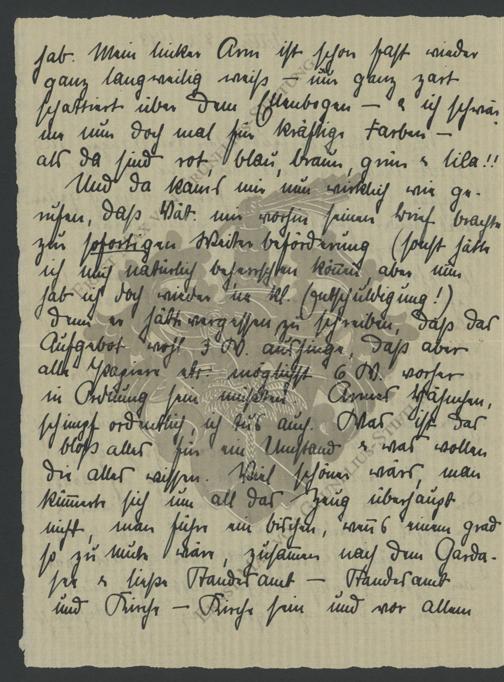 hab. Mein linker Arm ist schon fast wieder
ganz langweilig weiss – nur ganz zart
schattiert über dem Ellenbogen – & ich schwär
me nun doch mal für kräftige Farben –
als da sind rot, blau, braun, grün & lila!!
Und da kams mir nun wirklich wie ge-
rufen, daß Vät. mir vorhin seinen Brief brachte
zur sofortigen Weiterbeförderung (sonst hätte
ich mich natürlich beherrschen können aber nun
hab ich doch wieder 'ne kl. Entschuldigung!)
denn er hätte vergessen zu schreiben, daß das
Aufgebot wohl 3 W. aushinge, daß aber
alle Papiere etc. möglichst 6 W. vorher
in Ordnung sein müssten. Armes
schimpf ordentlich ich tus auch. Was ist das
bloß alles für ein Umstand & was wollen
die alles wissen. Viel schöner wärs, man
kümmerte sich um all das Zeug überhaupt
nicht, man führe ein bisschen, wenns einem grad
so zu mute wäre, zusammen nach dem Garda-
see & ließe Standesamt – Standesamt
und Kirche – Kirche sein und vor allem